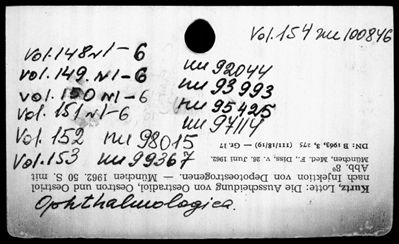 Vol. 154 nu 100846
vol. 148 N1-6
vol. 149. N1-6 nu 92044
vol. 150 N1-6 nu 93993
vol. 151 N1-6 nu 95425
nu 97114
Vol. 152 nu 98015
Vol. 153 nu 99367
Ophthalmologica.
Kurtz, Lotte: Die Ausscheidung von Oestradiol, Oestron und Oestriol
nach Injektion von Depotoestrogenen. — München 1962. 50 S. mit
Abb. 8°
München, Med. F., Diss. v. 28. Juni 1962.
DN: B 1963, 3, 275 (III/18/19) — Gr. 17